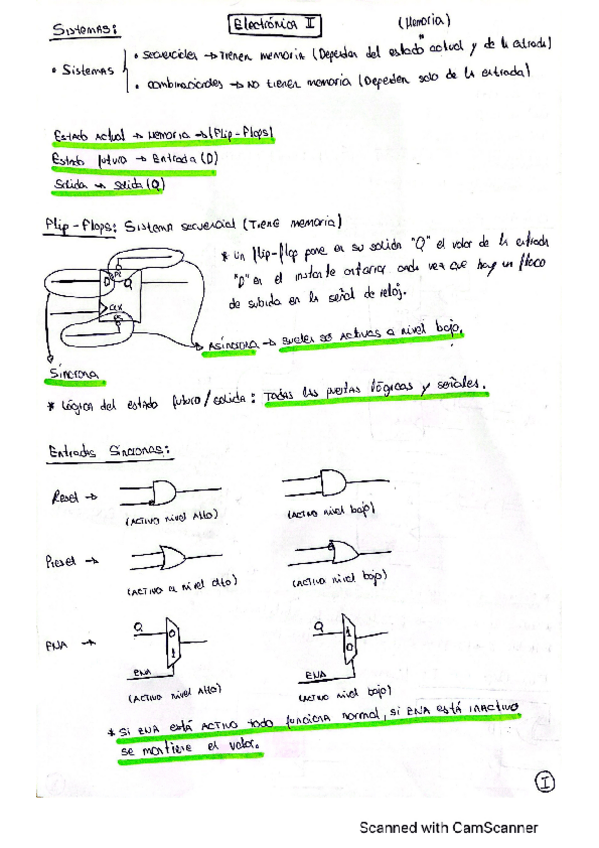 Sistemas:
Electrónica II
(Memoria)
• Sistemas
• secuenciales → Tienen memoria (Dependen del "estado" actual y de la entrada)
• combinacionales → NO tienen memoria (Dependen solo de la entrada)
Estado Actual → Memoria → (Flip-Flops)
Estado futuro → Entrada (D)
Salida → Salida (Q)
Flip-Flops: Sistema secuencial (Tiene memoria)
* Un flip-flop pone en su salida "Q" el valor de la entrada
"D" en el instante anterior cada vez que hay un flanco
de subida en la señal de reloj.
D
Q
CLK
Asíncrona → suelen ser activas a nivel bajo.
Síncrona
* Lógica del estado futuro/salida: Todas las puertas lógicas y señales.
Entradas Síncronas:
Reset →
(Activo nivel Alto)
(Activo nivel bajo)
Preset →
(Activo a nivel alto)
(Activo nivel bajo)
ENA →
Q
0
1
ENA
(Activo nivel Alto)
Q
1
0
ENA
(Activo nivel bajo)
* Si ENA está activo todo funciona normal, si ENA está inactivo
se mantiene el valor.
I
Scanned with CamScanner